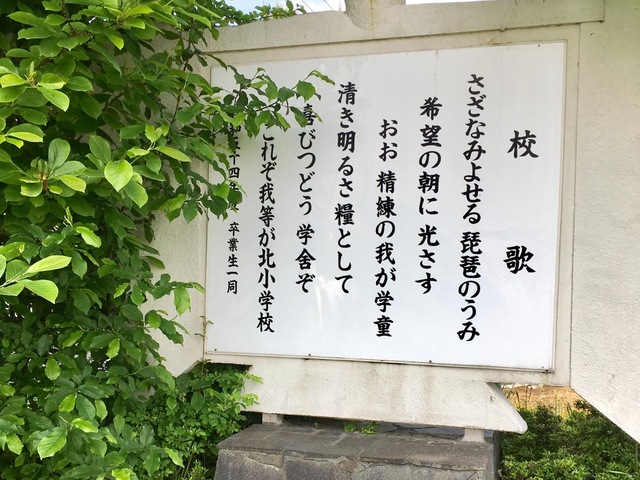 校歌
さざなみよせる 琵琶のうみ
希望の朝に 光さす
おお 精練の我が学童
清き明るさ 糧として
喜びつどう 学舎ぞ
これぞ我等が北小学校
十四年度 卒業生一同